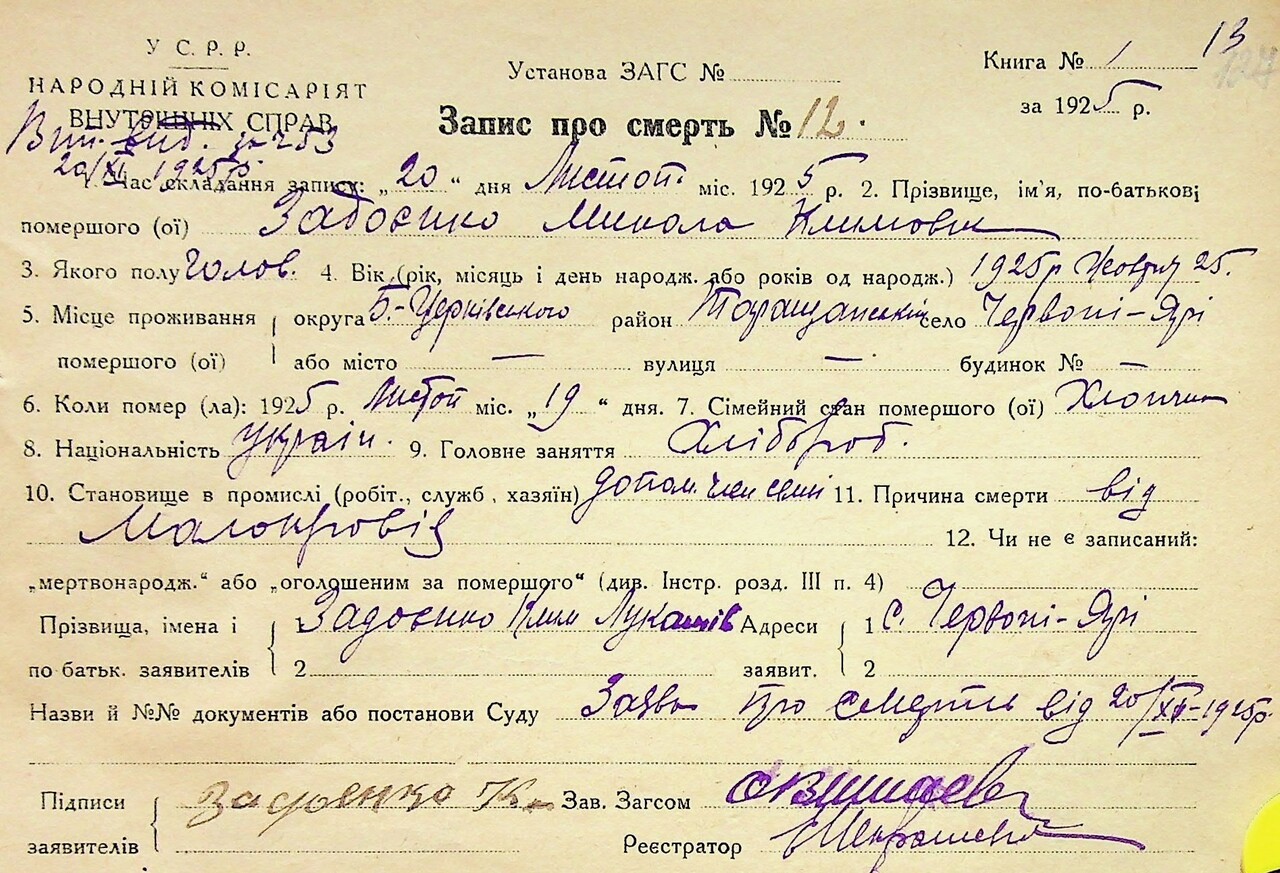 У С. Р. Р.
НАРОДНІЙ КОМІСАРІЯТ
ВНУТРІШНІХ СПРАВ
Установа ЗАГС №
Книга № 1 13
124
за 1925 р.
Запис про смерть № 12.
Вип. вид. за ч 53
20/XI 1925р.
1. Час складання запису: „20“ дня Листоп. міс. 1925 р. 2. Прізвище, ім'я, по-батькові
помершого (ої) Задоєнко Микола Климович
3. Якого полу Чолов. 4. Вік (рік, місяць і день народж. або років од народж.) 1925р Жовтня 25.
5. Місце проживання округа Б.-Церківського район Таращанський село Червоні-Ярі
помершого (ої) або місто — вулиця — будинок № —
6. Коли помер (ла): 1925 р. Листоп міс. „19“ дня. 7. Сімейний стан помершого (ої) Хлопчик
8. Національність Україн. 9. Головне заняття Хлібороб.
10. Становище в промислі (робіт., служб., хазяїн) допом. член семї 11. Причина смерти від
Малокровія 12. Чи не є записаний:
„мертвонародж.“ або „оголошеним за помершого“ (див. Інстр. розд. III п. 4)
Прізвища, імена і 1 Задоєнко Клим Лукашів Адреси 1 с. Червоні-Ярі
по батьк. заявителів 2 заявит. 2
Назви й №№ документів або постанови Суду Заява про смерть від 20/XI-1925р.
Підписи Задоенко К. Зав. Загсом
заявителів Реєстратор